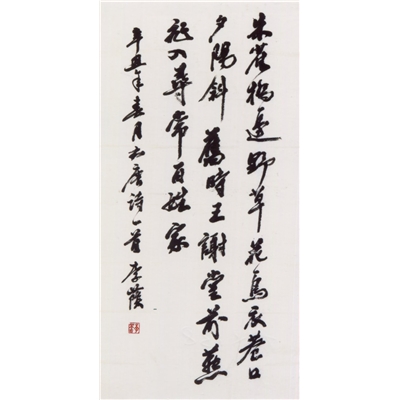 朱雀橋邊野草花烏衣巷口
夕陽斜舊時王謝堂前燕
飛入尋常百姓家
辛丑年春月右唐詩一首 李